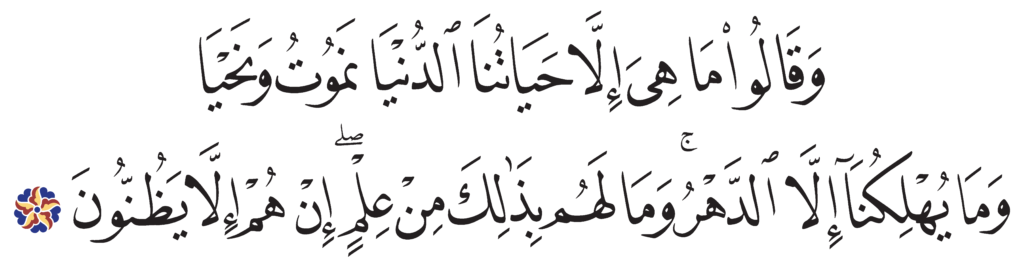 وَقَالُوا۟ مَا هِىَ إِلَّا حَيَاتُنَا ٱلدُّنْيَا نَمُوتُ وَنَحْيَا
وَمَا يُهْلِكُنَآ إِلَّا ٱلدَّهْرُ ۚ وَمَا لَهُم بِذَٰلِكَ مِنْ عِلْمٍ ۖ إِنْ هُمْ إِلَّا يَظُنُّونَ